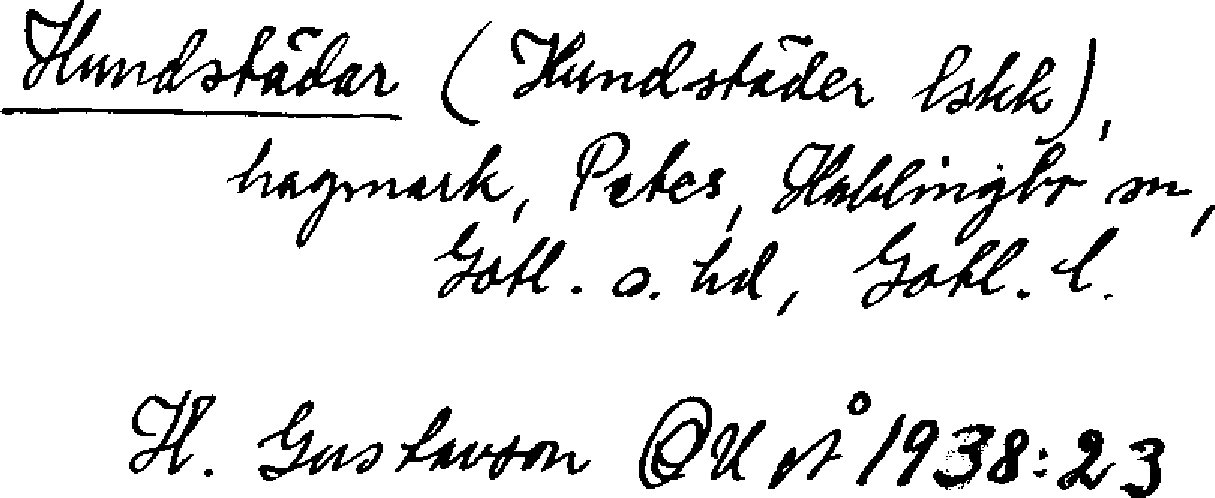 Hundstädar (Hundstäder lskk),
hagmark, Petes, Hablingbo sn,
Gotl. s. hd, Gotl. l.
H. Gustavson OU å 1938:23